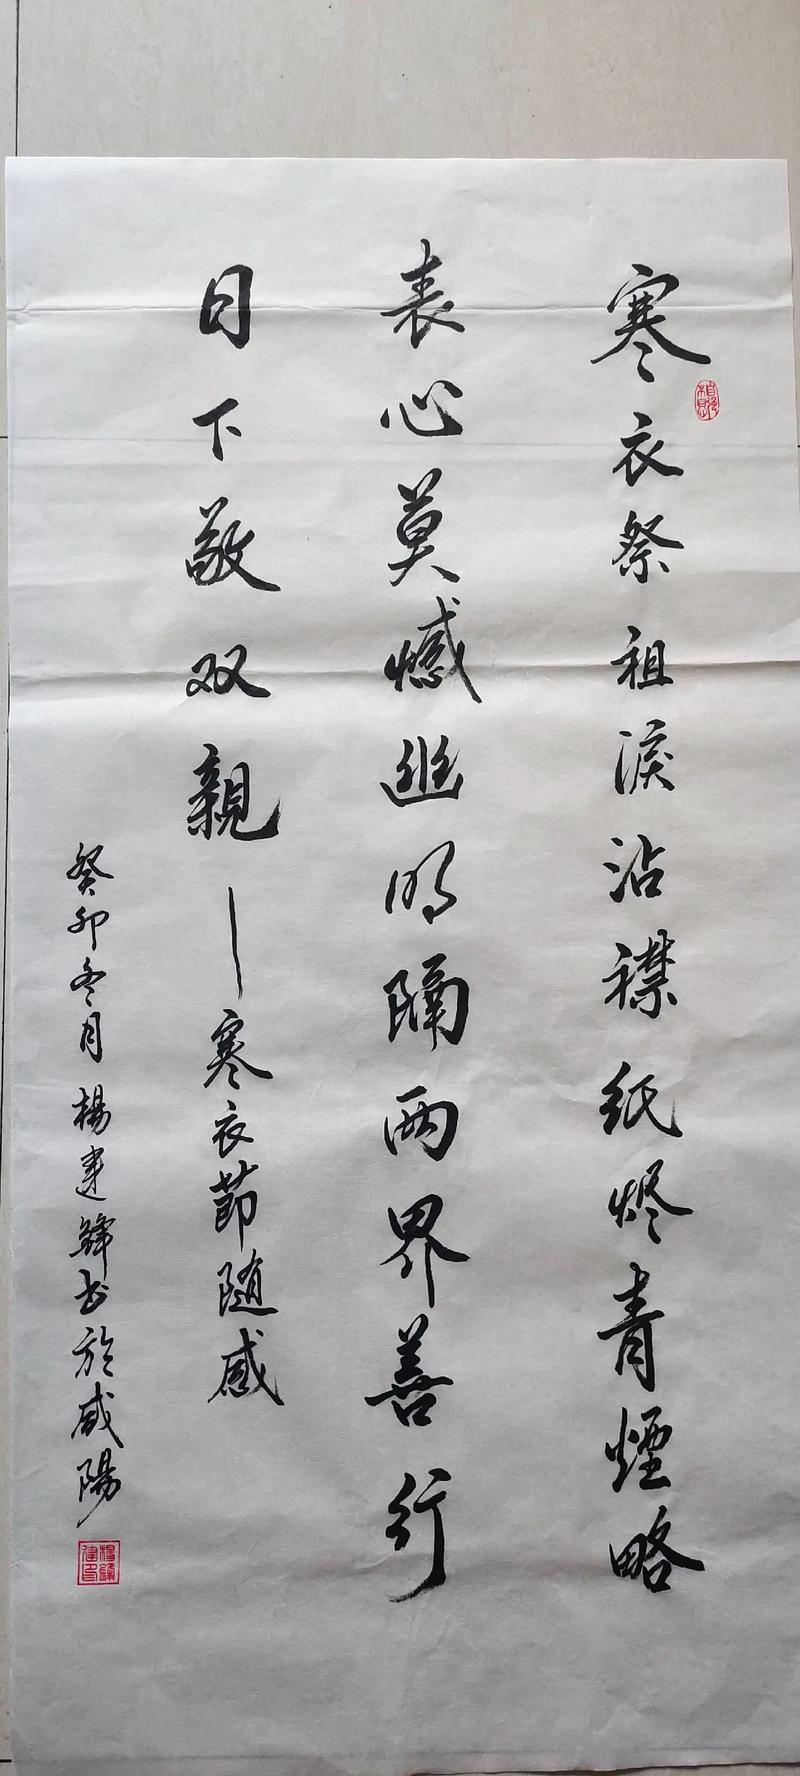 寒衣祭祖淚沾襟纸烬青煙略
表心莫憾幽明隔两界善行
日下敬双親—寒衣節随感
癸卯冬月楊建鋒书於咸陽